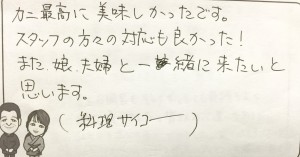 カニ最高に美味しかったです。
スタッフの方々の対応も良かった!
また娘夫婦と一緒に来たいと
思います。
(料理サイコー)